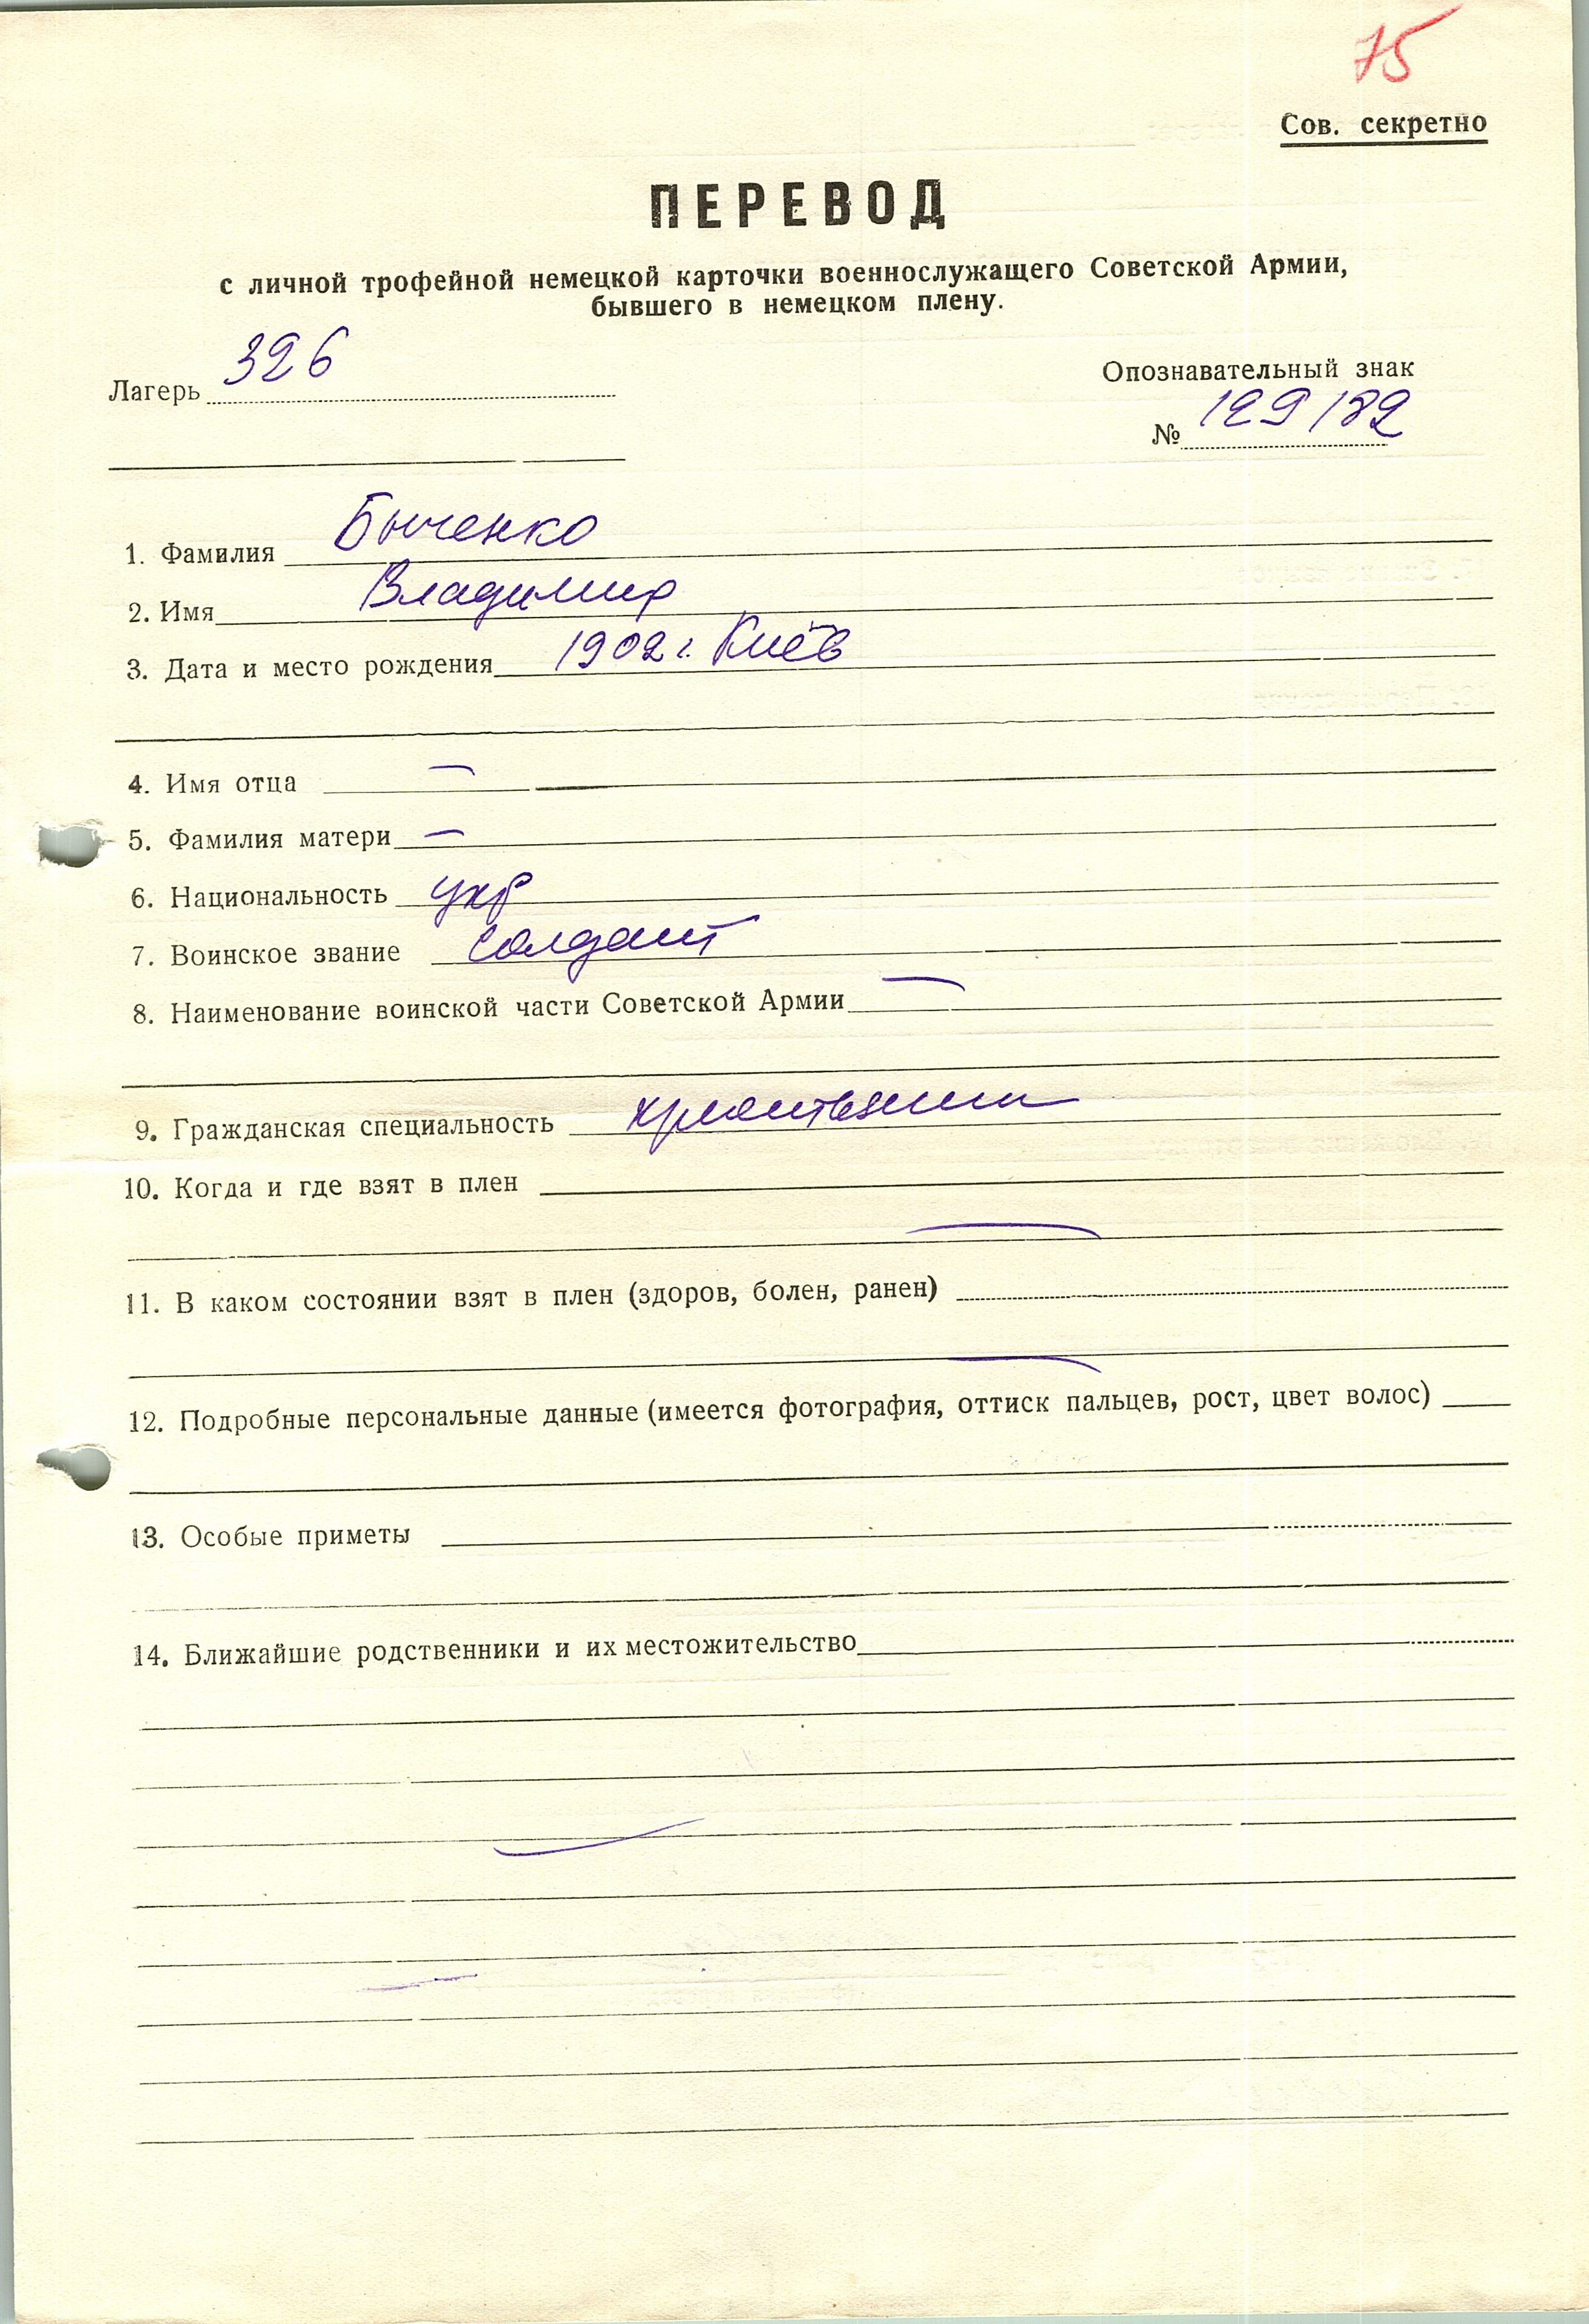 75
Сов. секретно
ПЕРЕВОД
с личной трофейной немецкой карточки военнослужащего Советской Армии,
бывшего в немецком плену.
Лагерь 326
Опознавательный знак
№ 129182
1. Фамилия Быченко
2. Имя Владимир
3. Дата и место рождения 1902 г. Киев
4. Имя отца —
5. Фамилия матери —
6. Национальность укр
7. Воинское звание солдат
8. Наименование воинской части Советской Армии —
9. Гражданская специальность
10. Когда и где взят в плен
—
11. В каком состоянии взят в плен (здоров, болен, ранен)
—
12. Подробные персональные данные (имеется фотография, оттиск пальцев, рост, цвет волос)
13. Особые приметы
14. Ближайшие родственники и их местожительство